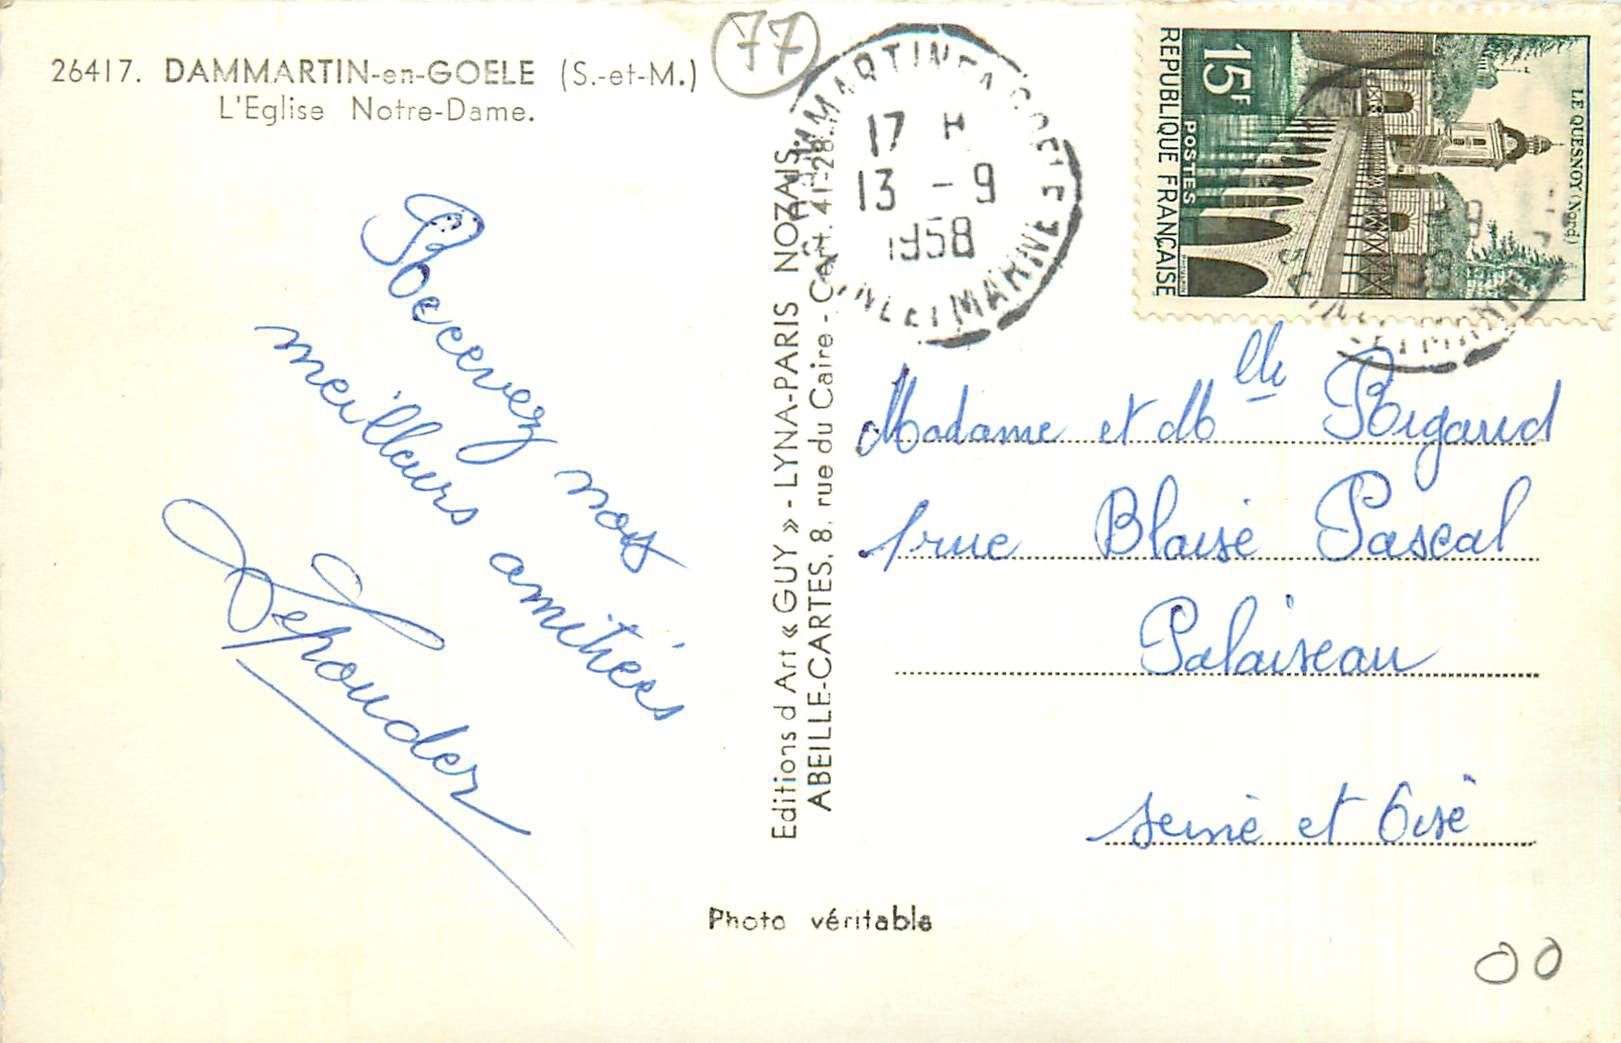 26417. DAMMARTIN-en-GOELE (S.-et-M.)
L'Eglise Notre-Dame.
77
17 H
13 - 9
1958
SEINE ET MARNE
15F
POSTES
REPUBLIQUE FRANÇAISE
LE QUESNOY (Nord)
Recevez nos
meilleurs amitiées
Editions d'Art « GUY » - LYNA-PARIS NOZAIS
ABEILLE-CARTES, 8, rue du Caire - 41-28
Madame et Mlle Rigaud
1 rue Blaise Pascal
Palaiseau
Seine et Oise
Photo véritable
00